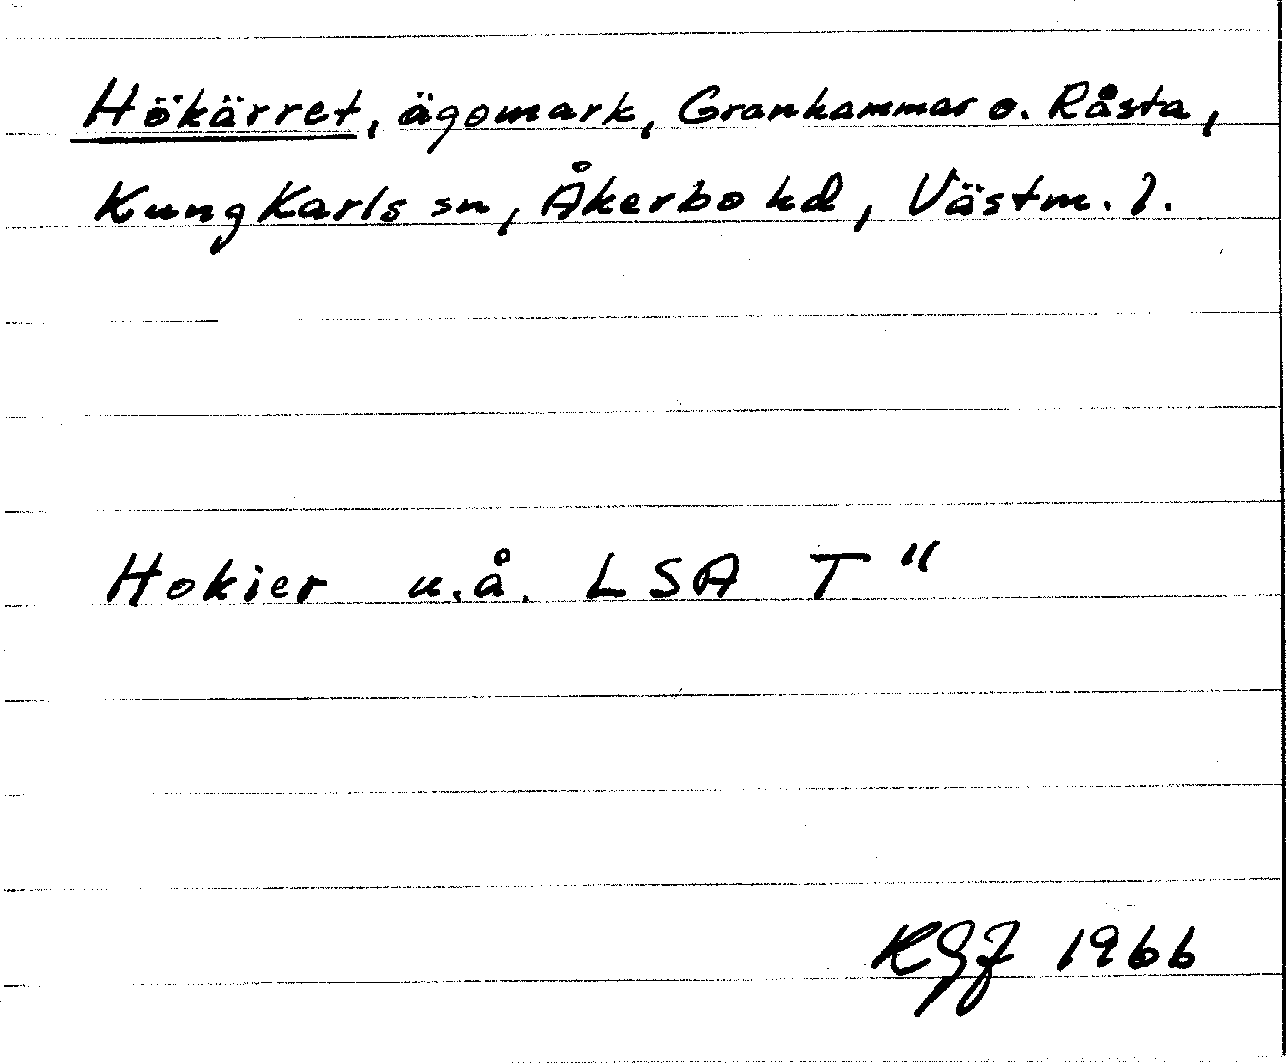 Hökärret, ägomark, Granhammar o. Råsta,
Kung Karls sn, Åkerbo hd, Västm. l.
Hokier u.å. LSA T "
KGJ 1966